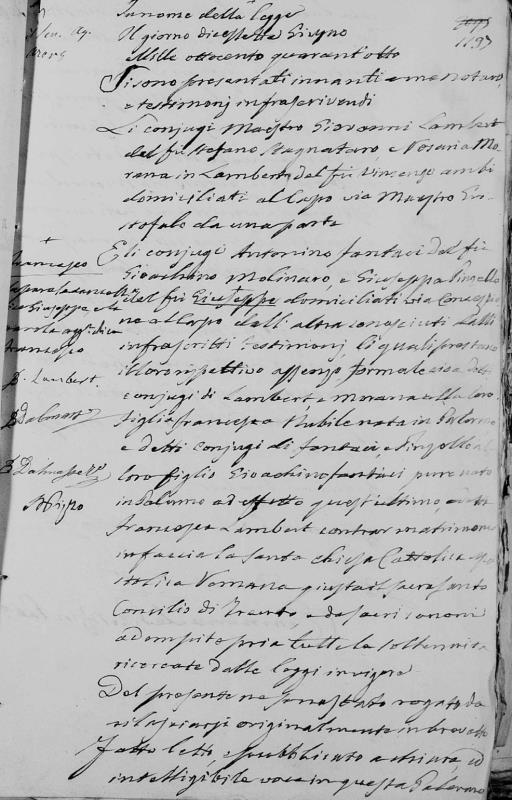 In nome della Legge
Il giorno diecisette Giugno
Mille ottocento quarant'otto
1197
Si sono presentati innanti a me notaro,
e testimonj infrascrivendi
Li conjugi Maestro Giovanni Lambert
del fù Stefano Stagnataro, e Rosaria Mo-
rana in Lambert, del fù Vincenzo ambi
domiciliati al Capo via Maestro Cri-
stofalo da una parte
E li conjugi Antonino Fantaci del fù
Gioachino Molinaro, e Giuseppa Pingollo
del fù Giuseppe domiciliati via Concezio
ne al Capo dall'altra conosciuti dalli
infrascritti testimonj, li quali prestano
il loro rispettivo assenzo formale cioè detti
conjugi di Lambert, e Morana alla loro
figlia Francesca Nubile nata in Palermo
e detti conjugi di Fantaci e Pingollo al
loro figlio Gioachino Fantaci pure nato
in Palermo ad effetto quest'ultimo,
Francesca Lambert contrar matrimonio
in faccia la Santa Chiesa Cattolica Apo
stolica Romana giusta il sacrosanto
Concilio di Trento, e da sacri canoni
adempite pria tutte le sollennità
ricercate dalle leggi in vigore
Del presente ne sono stato rogato da
rilasciarsi originalmente in brevetto
Fatto letto, e pubblicato a chiara ed
intelligibile voce in questa Palermo
Francesco
Giuseppa e la
Francesco
D. Lambert